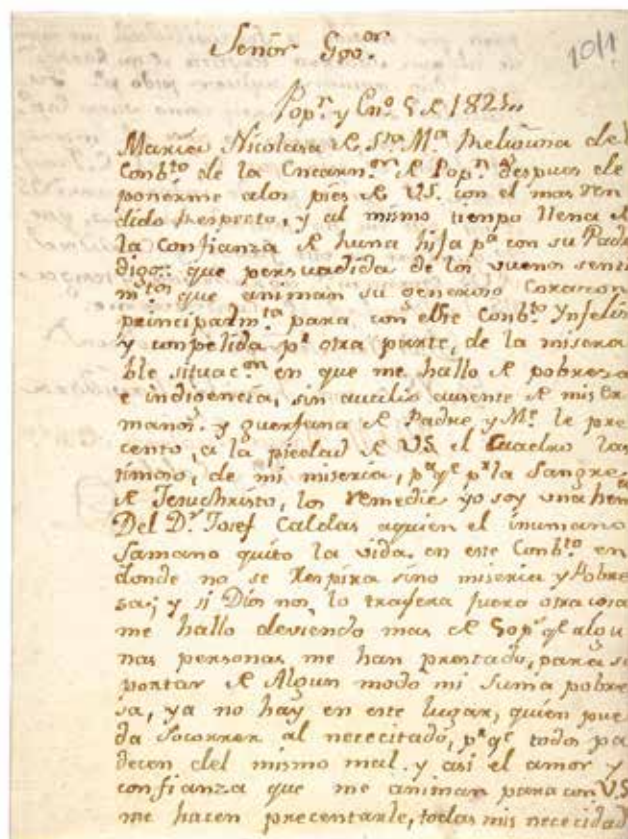 Señor Goo.or
1011
Pop.n y En.o 5 de 1825,,
Maria Nicolasa de S.ta M.a Relisiuna del
Conb.to de la Encarn.on de Pop.n despues de
ponerme alos pies de VS. con el mas ren
dido Respecto, y al mismo tiempo llena de
la confianza de huna hija p.a con su Padre
digo: que persuadida de los vuenos senti
m.tos que animan su generoso Corazon
principalm.te para con este Conb.to Ynfelis
y conpelida p.r otra parte, de la misera
ble situac.on en que me hallo de pobresa
e indigencia, sin aucilio ausente de mis er
manos. y guerfana de Padre y M.e le pre
cento, a la piedad de VS. el Cuadro las
timoso, de mi miseria, p.a q.e p.r la Sangre
de Jesuchristo, los remedie yo soy una hen.a
Del D.r Josef Caldas aquien el inumano
Samano quito la vida. en este Conb.to en
donde no se Respira sino miseria y Pobre
sa; y si Dios nos, lo trajera fuera otra cosa
me hallo deviendo mas de 50p.s q.e algu
nas personas me han prestado, para so
portar de Algun modo mi suma pobre
sa, ya no hay en este lugar, quien pue
da Socorrer al nececitado, p.r q.e todos pa
decen del mismo mal. y asi el amor y
confianza que me animan para con VS
me hacen precentarle, todas mis nececidad